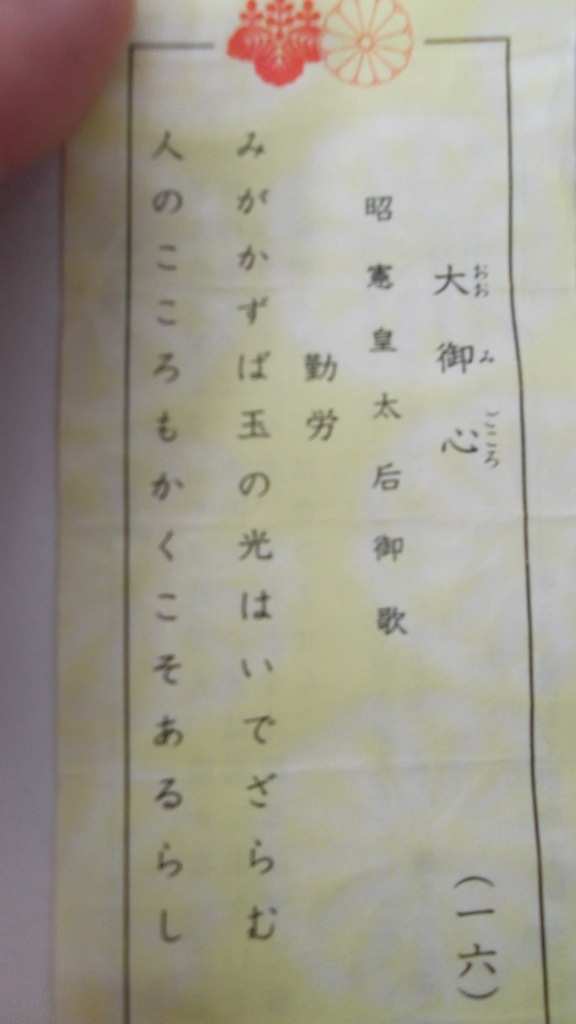 大御心
おおみごころ
(一六)
昭憲皇太后御歌
勤労
みがかずば玉の光はいでざらむ
人のこころもかくこそあるらし